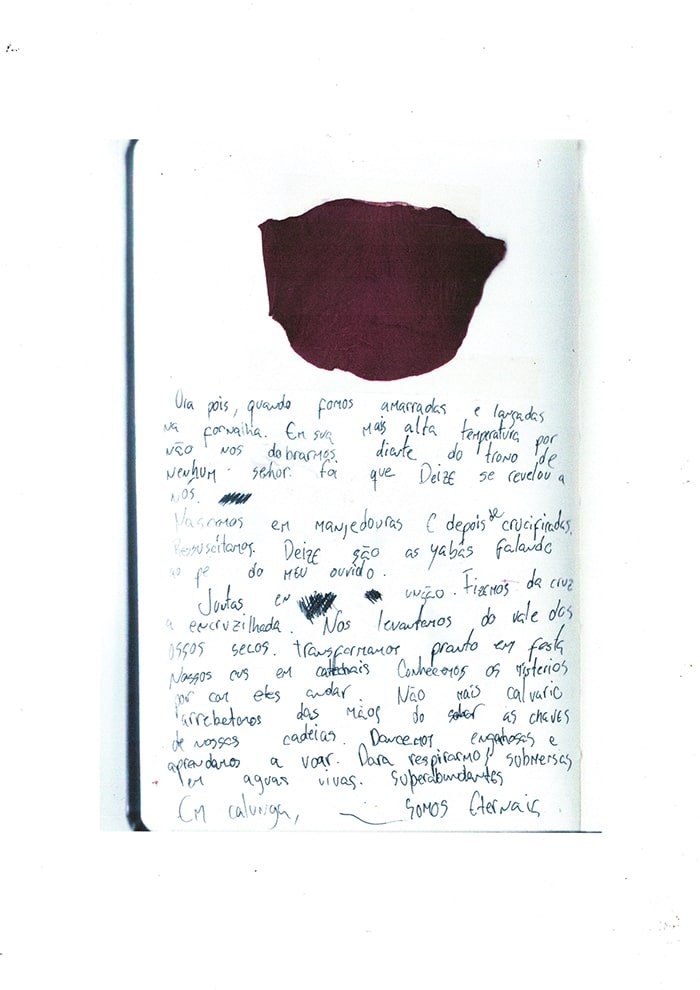 Ora pois, quando fomos amarradas e lançadas
na fornalha. Em sua mais alta temperatura por
não nos dobrarmos diante do trono de
nenhum senhor. foi que Deize se revelou a
nós.
Nascemos em manjedouras E depois de crucificadas,
Ressuscitamos. Deize são as yabás falando
ao pé do meu ouvido.
Juntas em união. Fizemos da cruz
a encruzilhada. Nos levantamos do vale dos
ossos secos. transformamos pranto em festa
Nossos cus em catedrais Conhecemos os misterios
por com eles andar. Não mais calvario
arrebetamos das mãos do as chaves
de nossas cadeias. Dancemos e
aprendamos a voar. Para respirarmos submersas
em aguas vivas. superabundantes
Em calunga, somos Eternais.